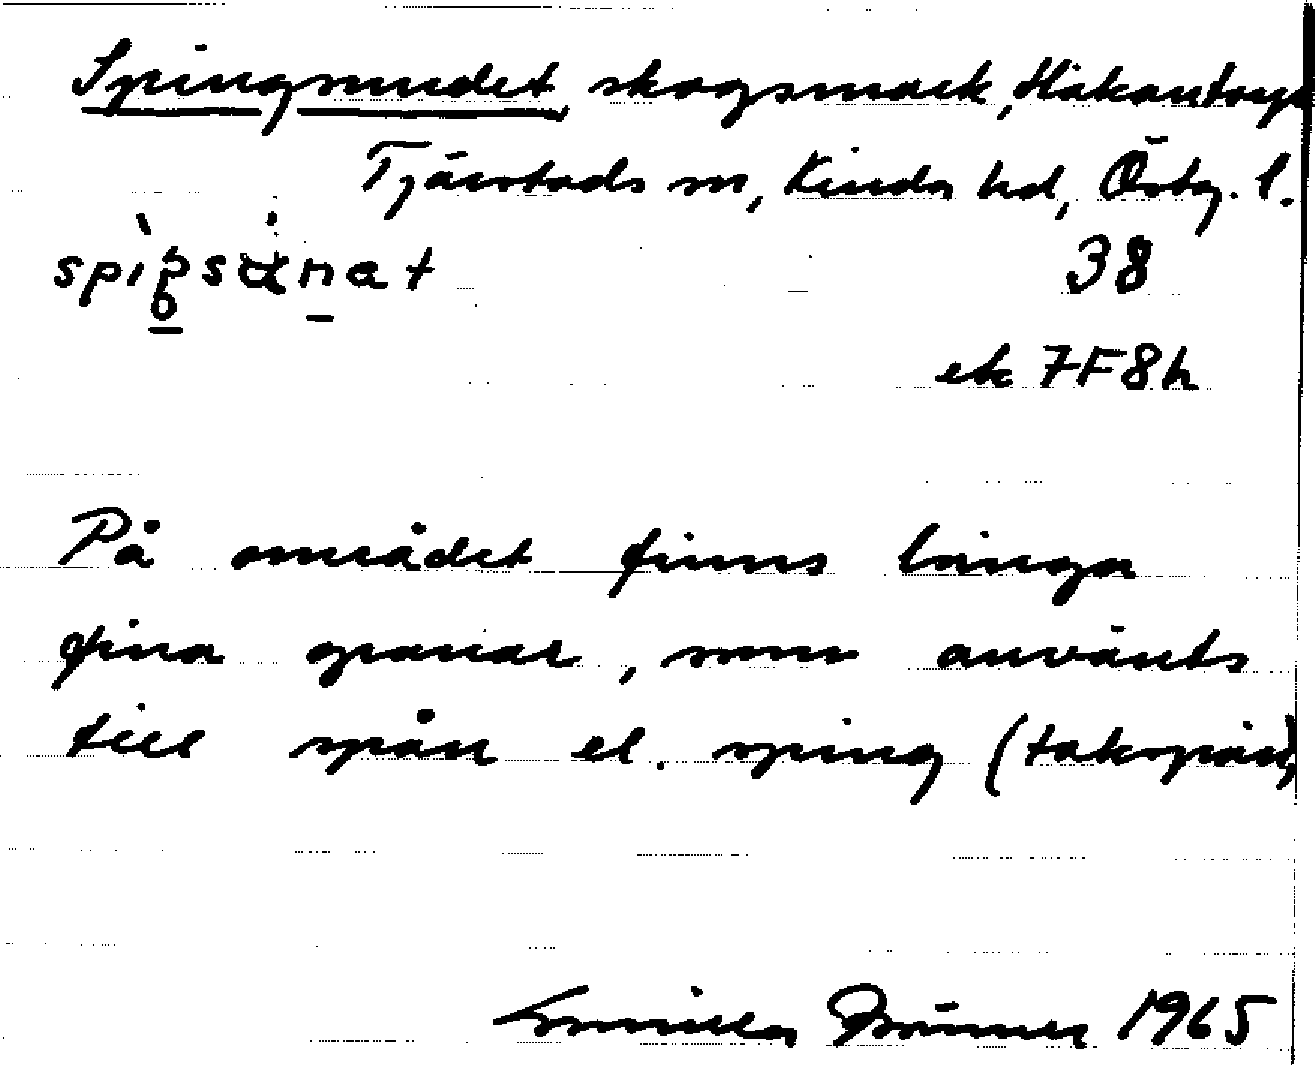 Spingsundet skogsmark, Håkantorp
Tjärstads sn, Kinda hd, Östg. l.
38
ek 7F8h
På området finns långa
fina granar, som använts
till spån el. sping (takspån)
Gunilla Brönner 1965